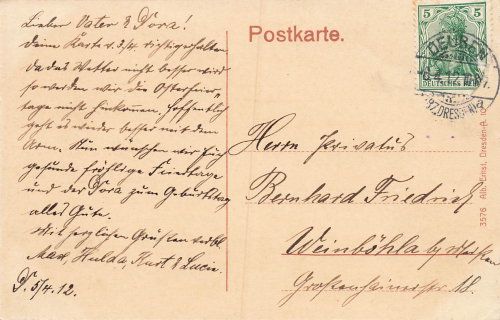 Lieber Vater & Dora!
Deine Karte v. 3/4. richtig erhalten,
da das Wetter nicht besser wird
so werden wir die Osterfeier-
tage nicht hinkommen. Hoffentlich
geht es wieder besser mit dem
Arm. Nun wünschen wir Euch
gesunde fröhliche Feiertage
und der Dora zum Geburtstag
alles Gute.
Mit herzlichen Grüßen verbl.
Max, Hulda, Kurt & Lucie.
D. 5/4.12.
Postkarte.
5 5
DEUTSCHES REICH
DEUBEN
(BZ. DRESDEN) a
Herrn Privatus
Bernhard Friedrich
Weinböhla by Meißen
Großenhainerstr. 18.
3576 Ernst, Dresden-A. 10